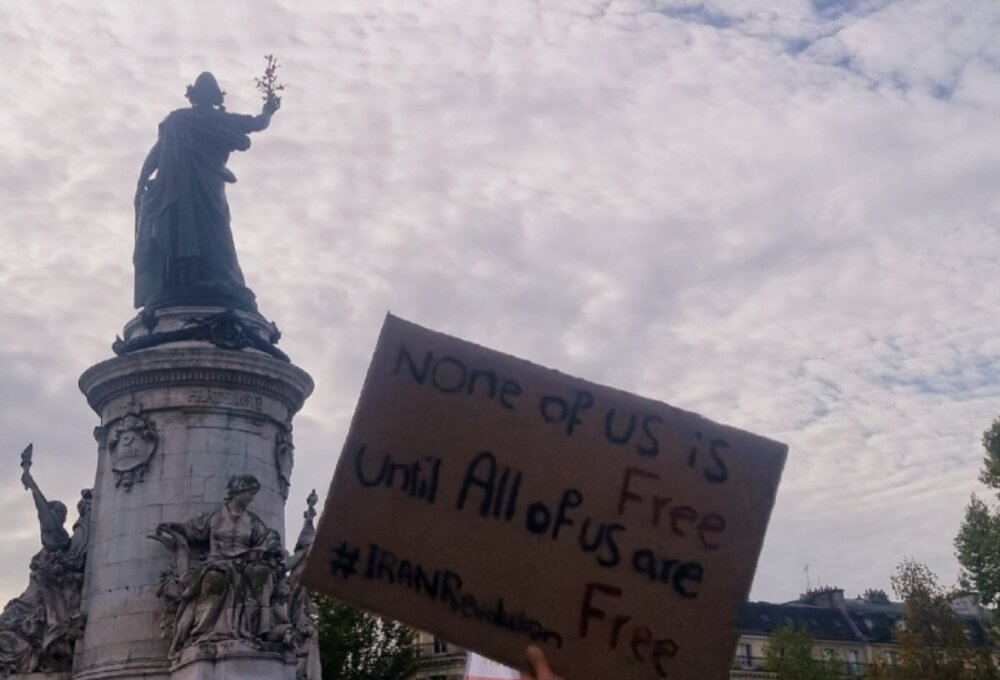 FRATERNITE
None of us is
Free
Until All of us are
Free
#IRANRevolution